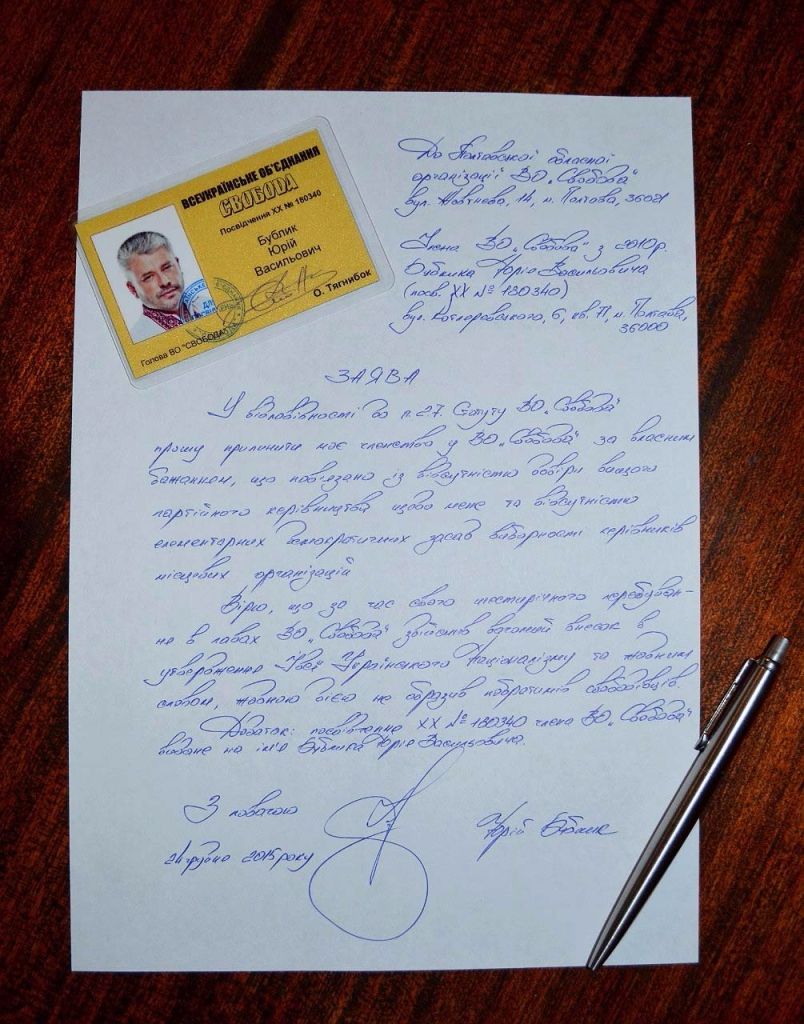 ВСЕУКРАЇНСЬКЕ ОБ'ЄДНАННЯ
СВОБОДА
Посвідчення ХХ № 180340
Бублик
Юрій
Васильович
О. Тягнибок
Голова ВО "СВОБОДА"
До Полтавської обласної
організації ВО „Свобода"
вул. Жовтнева, 14, м. Полтава, 36021
Члена ВО „Свобода" з 2010р.
Бублика Юрія Васильовича
(посв. ХХ № 180340)
вул. Котляревського, 6, кв. 71, м. Полтава,
36000
ЗАЯВА
У відповідності до п. 2.7. Статуту ВО „Свобода"
прошу припинити моє членство у ВО „Свобода" за власним
бажанням, що пов'язано із відсутністю довіри вищого
партійного керівництва щодо мене та відсутністю
елементарних демократичних засад виборності керівників
місцевих організацій
Вірю, що за час свого шестирічного перебуван-
ня в лавах ВО „Свобода" здійснив вагомий внесок в
утвердження Ідеї Українського Націоналізму та жодним
словом, жодною дією не образив побратимів свободівців.
Додаток: посвідчення ХХ № 180340 члена ВО „Свобода"
видане на ім'я Бублика Юрія Васильовича.
З повагою
Юрій Бублик
грудня 2015 року